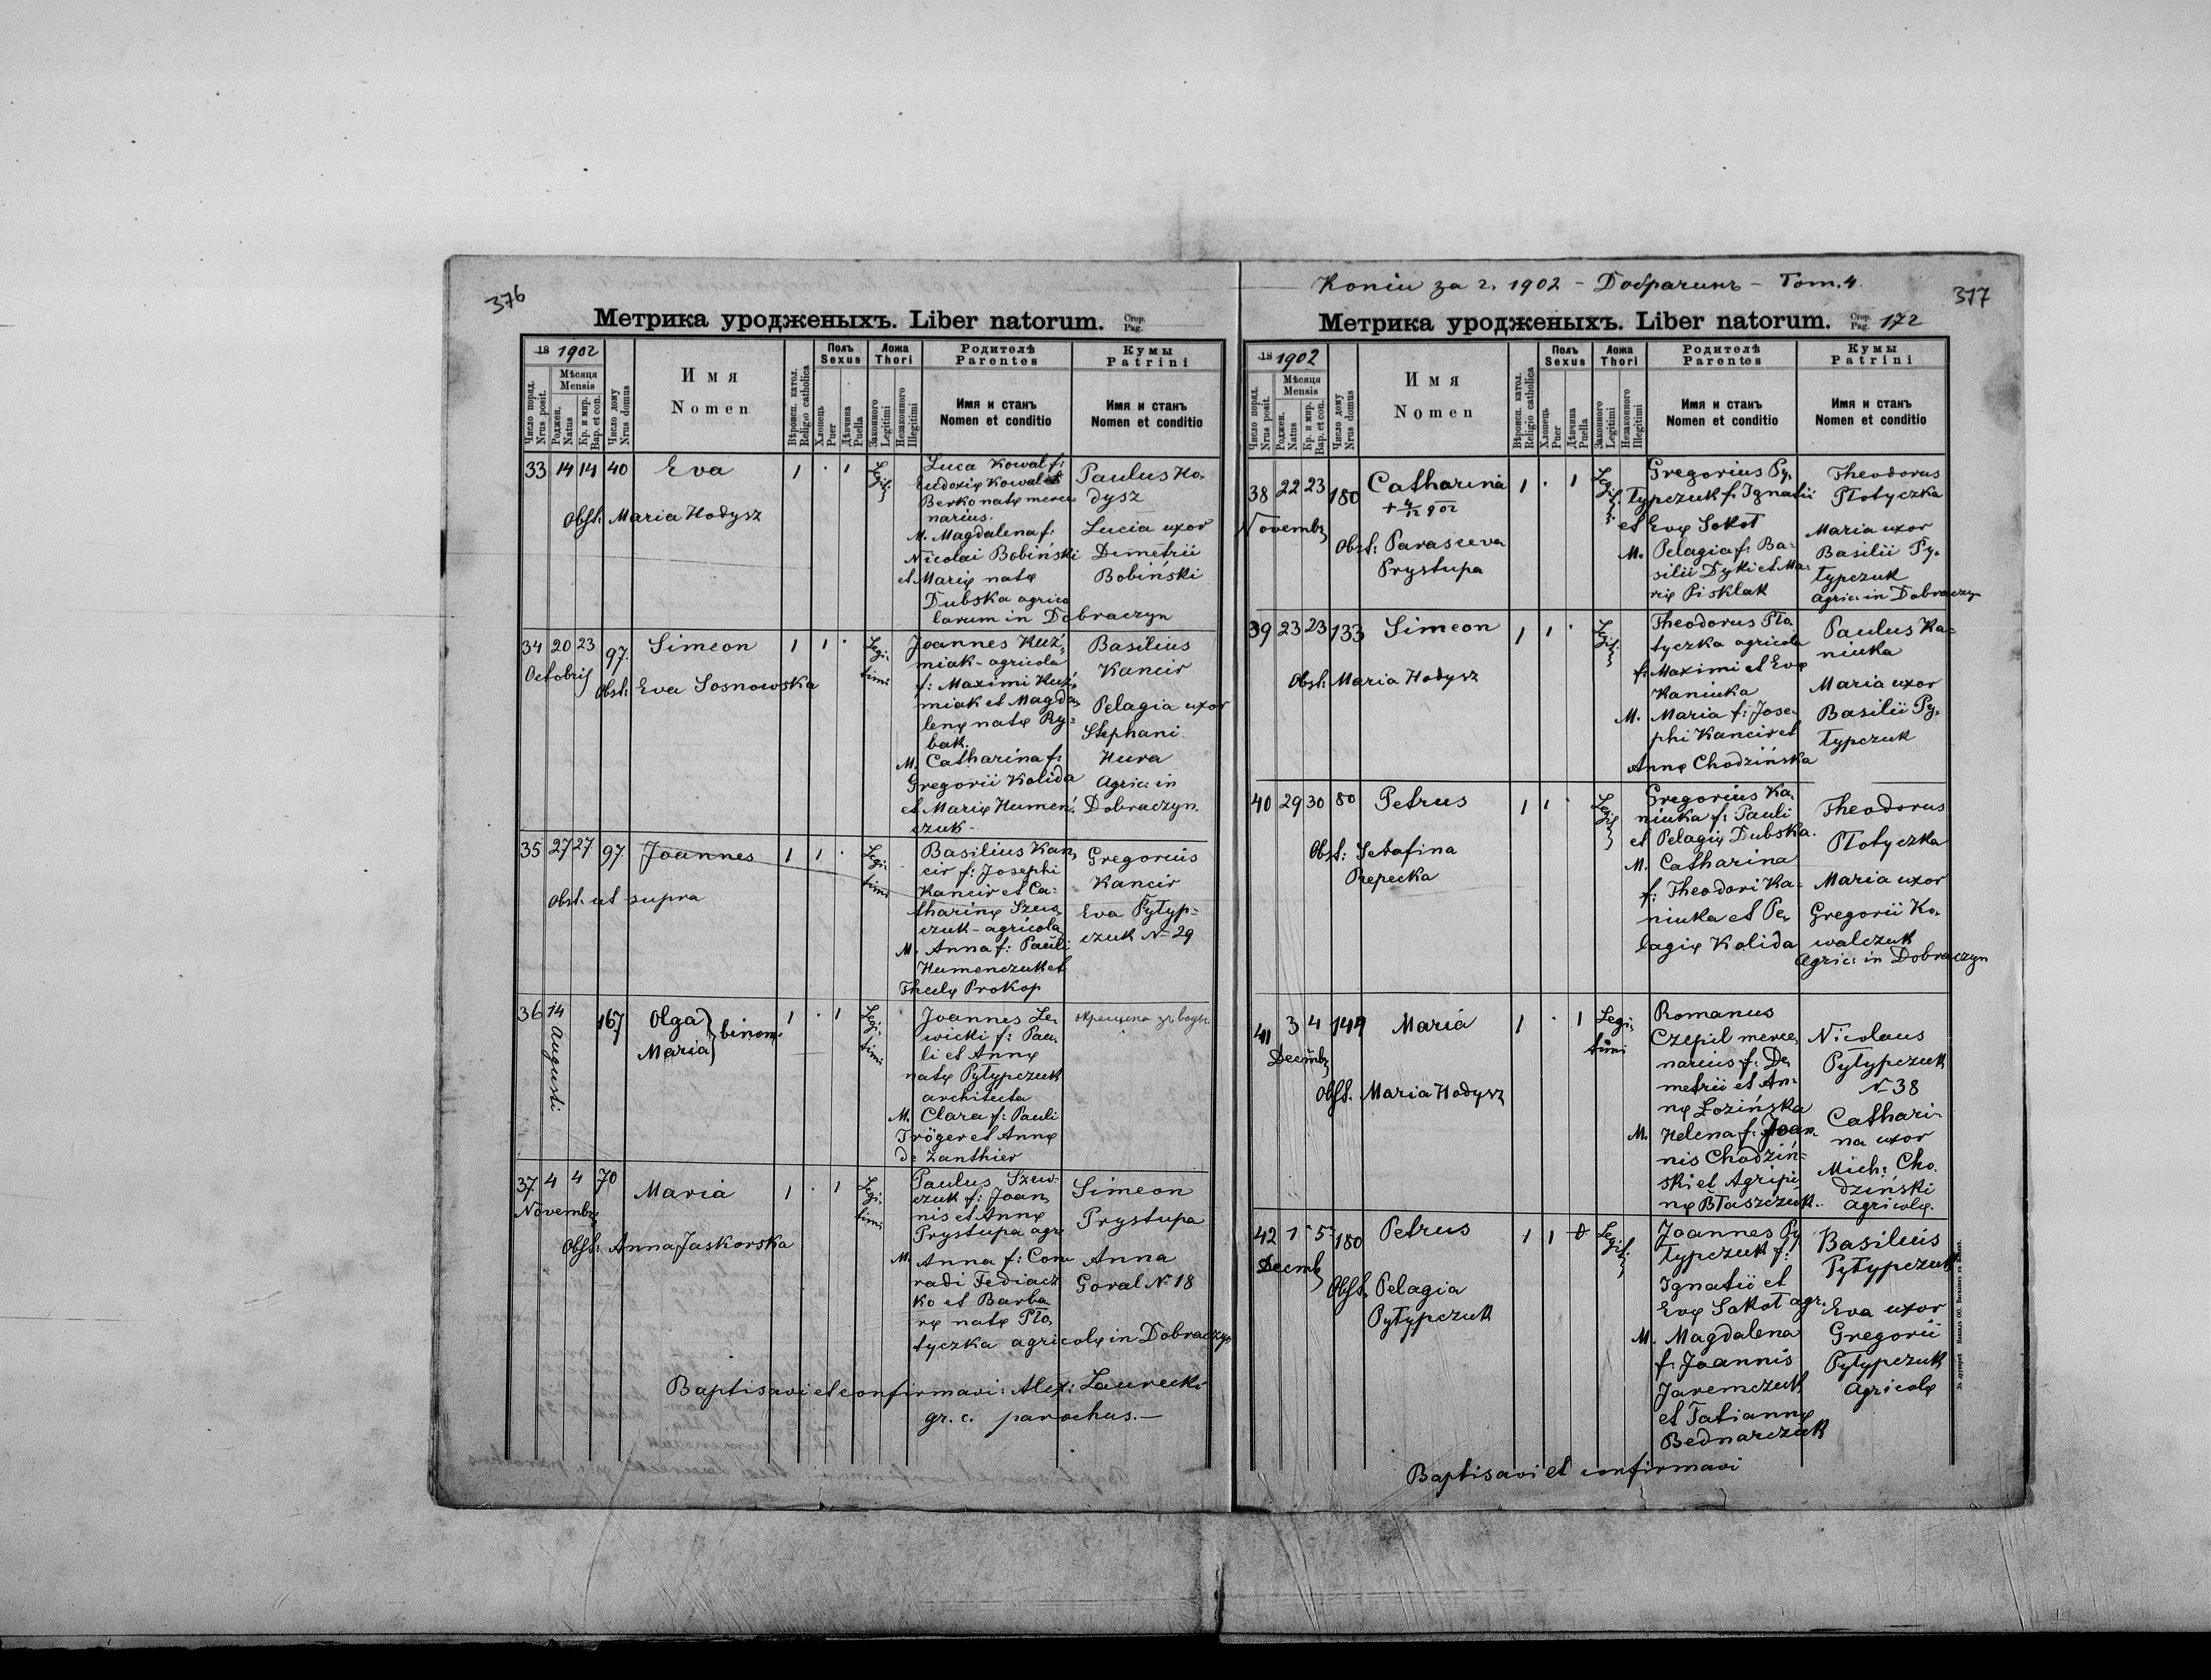 376
Метрика уродженыхъ. Liber natorum. Стор. Pag.
18 1902
Число поряд. Nrus posit.
Мѣсяця Mensis
Роджен. Natus
Кр. и мир. Bap. et con.
Число дому Nrus domus
Имя
Nomen
Вѣроисп. катол. Religio catholica
Полъ Sexus
Хлопець Puer
Дѣвчина Puella
Ложа Thori
Законного Legitimi
Незаконного Illegitimi
Родителѣ
Parentes
Имя и станъ
Nomen et conditio
Кумы
Patrini
Имя и станъ
Nomen et conditio
33 14 14 40 Eva 1 · 1 Legit.
Obst: Maria Hodysz
Luca Kowal f:
Eudoxię Kowal et
Berko natę merce
narius.
M. Magdalena f:
Nicolai Bobiński
et Marię natę
Dubska agrico
larum in Dobraczyn
Paulus Ho-
dysz
Lucia uxor
Demetrii
Bobiński
34 20 23 97. Simeon 1 1 · Legi-
timi
Octobris
Obst: Eva Sosnowska
Joannes Kuź-
miak - agricola
f: Maximi Kuź-
miak et Magda
lenę natę Ry-
bak.
M. Catharina f:
Gregorii Kolida
et Marię Humen-
czuk -
Basilius
Kancir
Pelagia uxor
Stephani
Hura
Agric: in
Dobraczyn.
35 27 27 97. Joannes 1 1 · Legi-
timi
Obst. ut supra
Basilius Kan-
cir f: Josephi
Kancir et Ca-
tharinę Szew
czuk - agricola
M. Anna f: Pauli
Humenczuk et
Theclę Prokop
Gregorius
Kancir
Eva Pyłyp-
czuk N 29
36 14 Augusti 167 Olga
Maria } binom. 1 · 1 Legi-
timi
Joannes Le-
wicki f: Pau-
li et Annę
natę Pyłypczuk
architecta
M. Clara f: Pauli
Tröger et Annę
de Zanthier
окрещена зъ воды.
37 4 4 70 Maria 1 · 1 Legi-
timi
Novembr
Obst: Anna Jaskorska
Paulus Szew-
czuk f: Joan
nis et Annę
Prystupa agr
M. Anna f: Con
radi Fediacz
ko et Barba
rę natę Pło-
tyczka agricolę in Dobraczyn
Simeon
Prystupa
Anna
Goral N 18
Baptisavi et confirmavi: Alex: Laurecki
gr. c. parochus. —
Копіи за г. 1902 - Добрачинъ - Том. 4.
377
Метрика уродженыхъ. Liber natorum. Стор. Pag. 172
18 1902
Число поряд. Nrus posit.
Мѣсяця Mensis
Роджен. Natus
Кр. и мир. Bap. et con.
Число дому Nrus domus
Имя
Nomen
Вѣроисп. катол. Religio catholica
Полъ Sexus
Хлопець Puer
Дѣвчина Puella
Ложа Thori
Законного Legitimi
Незаконного Illegitimi
Родителѣ
Parentes
Имя и станъ
Nomen et conditio
Кумы
Patrini
Имя и станъ
Nomen et conditio
38 22 23 180 Catharina 1 · 1 Legit.
Novembr
Obst: Parasceva
Prystupa
Gregorius Py-
łypczuk f: Ignatii
et Evę Sokoł
M. Pelagia f: Ba-
silii Dyki et Ma-
rię Pisklak
Theodorus
Płotyczka
Maria uxor
Basilii Py-
łypczuk
agric: in Dobraczyn
39 23 23 133 Simeon 1 1 · Legit.
Obst: Maria Hodysz
Theodorus Pło
tyczka agricola
f: Maximi et Evę
Kaniuka
M. Maria f: Jose-
phi Kancir et
Annę Chodzińska
Paulus Ka-
niuka
Maria uxor
Basilii Py-
łypczuk
40 29 30 80 Petrus 1 1 · Legit.
Obst: Serafina
Repecka
Gregorius Ka-
niuka f: Pauli
et Pelagię Dubska.
M. Catharina
f: Theodori Ka-
niuka et Pe-
lagię Kolida
Theodorus
Płotyczka
Maria uxor
Gregorii Ko-
walczuk
agric: in Dobraczyn
41 3 4 149 Maria 1 · 1 Legi-
timi
Decembr
Obst. Maria Hodysz
Romanus
Czepil merce-
narius f: De
metrii et An-
nę Łozińska
M. Helena f: Joan
nis Chodziń-
ski et Agripi-
nę Błaszczuk.
Nicolaus
Pyłypczuk
N 38
Cathari-
na uxor
Mich: Cho-
dziński
agricolę.
42 1 5 180 Petrus 1 1 0 Legit.
Decemb
Obst. Pelagia
Pyłypczuk
Joannes Py
łypczuk f:
Ignatii et
Evę Sokoł agr.
M. Magdalena
f: Joannis
Jaremczuk
et Tatiannę
Bednarczuk
Basilius
Pyłypczuk
Eva uxor
Gregorii
Pyłypczuk
Agricolę
Baptisavi et confirmavi